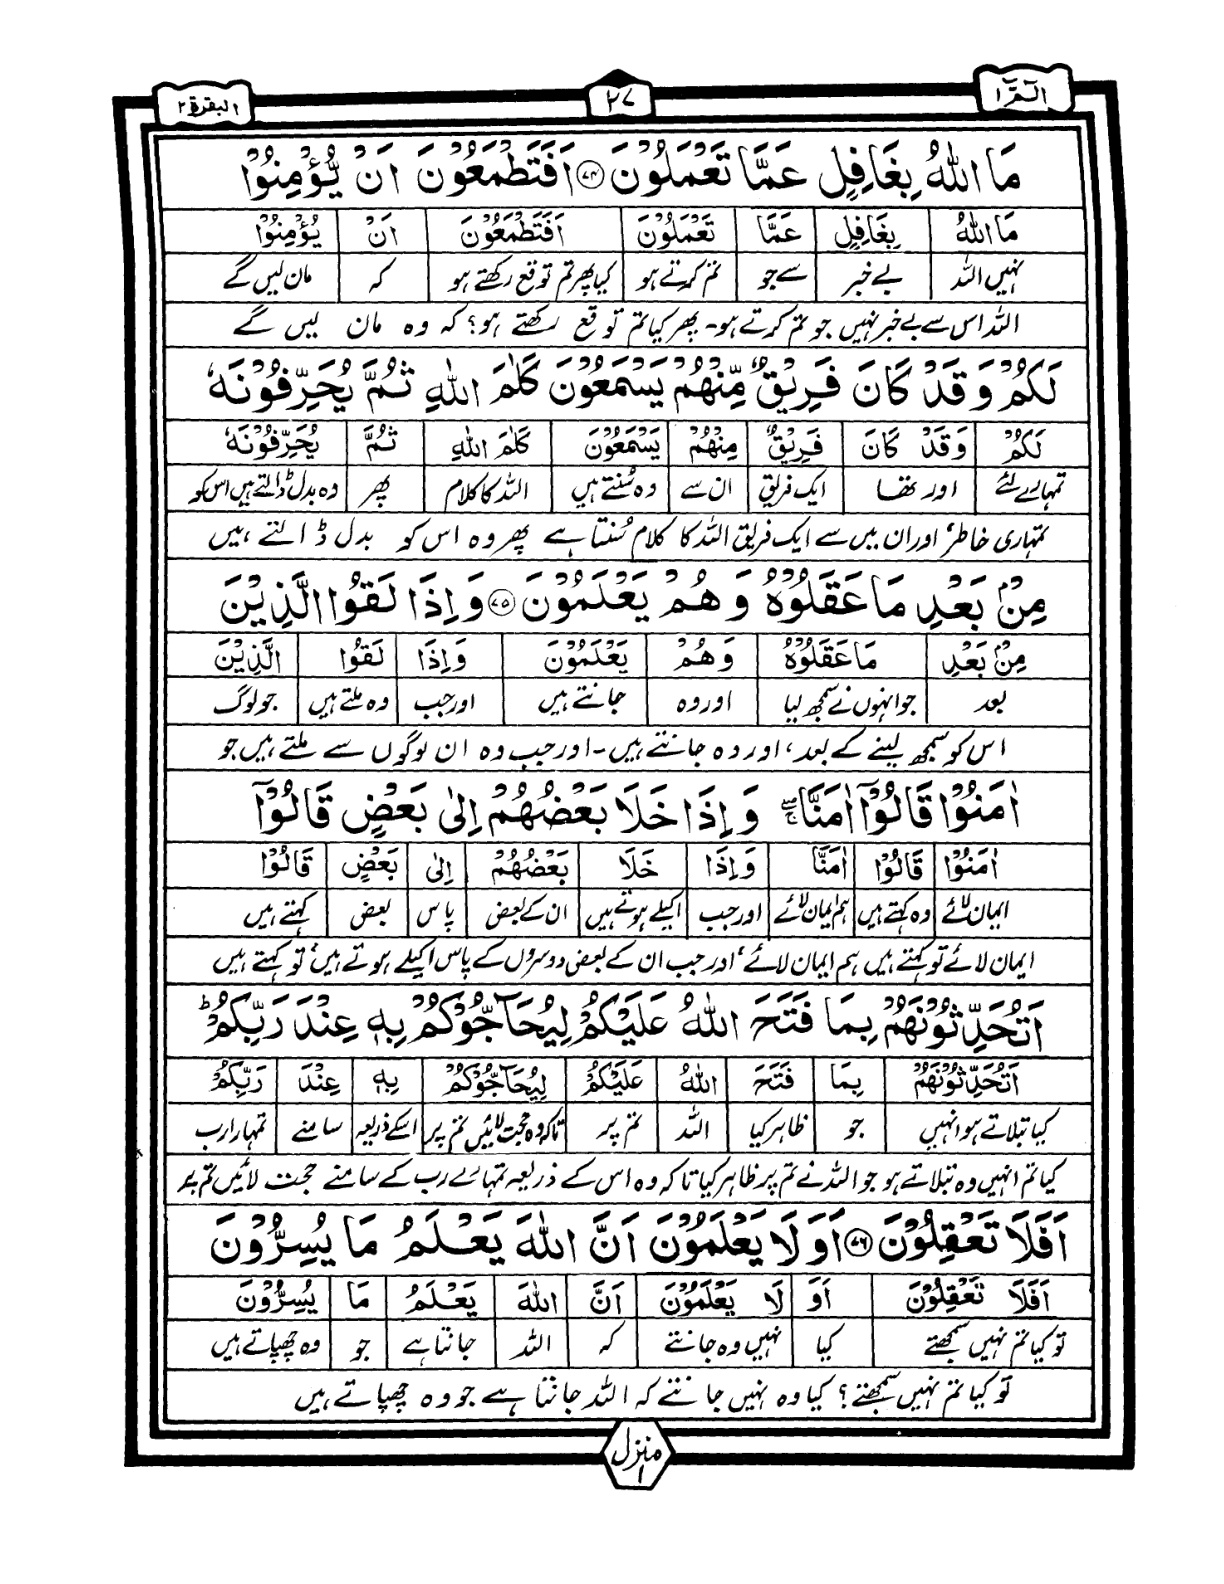 الٓمّٓ ١ ٢٧ البقرة ٢
مَا اللّٰهُ بِغَافِلٍ عَمَّا تَعْمَلُوْنَ ﴿٧٤﴾ اَفَتَطْمَعُوْنَ اَنْ يُّؤْمِنُوْا
مَا اللّٰهُ بِغَافِلٍ عَمَّا تَعْمَلُوْنَ اَفَتَطْمَعُوْنَ اَنْ يُؤْمِنُوْا
نہیں اللہ بے خبر سے جو تم کرتے ہو کیا پھر تم توقع رکھتے ہو کہ مان لیں گے
اللہ اس سے بے خبر نہیں جو تم کرتے ہو۔ پھر کیا تم توقع رکھتے ہو؟ کہ وہ مان لیں گے
لَكُمْ وَقَدْ كَانَ فَرِيْقٌ مِّنْهُمْ يَسْمَعُوْنَ كَلٰمَ اللّٰهِ ثُمَّ يُحَرِّفُوْنَهٗ
لَكُمْ وَقَدْ كَانَ فَرِيْقٌ مِنْهُمْ يَسْمَعُوْنَ كَلٰمَ اللّٰهِ ثُمَّ يُحَرِّفُوْنَهٗ
تمہارے لئے اور تھا ایک فریق ان سے وہ سُنتے ہیں اللہ کا کلام پھر وہ بدل ڈالتے ہیں اس کو
تمہاری خاطر، اور ان میں سے ایک فریق اللہ کا کلام سُنتا ہے پھر وہ اس کو بدل ڈالتے ہیں
مِنْۢ بَعْدِ مَا عَقَلُوْهُ وَهُمْ يَعْلَمُوْنَ ﴿٧٥﴾ وَاِذَا لَقُوا الَّذِيْنَ
مِنْۢ بَعْدِ مَا عَقَلُوْهُ وَهُمْ يَعْلَمُوْنَ وَاِذَا لَقُوا الَّذِيْنَ
بعد جو انہوں نے سمجھ لیا اور وہ جانتے ہیں اور جب وہ ملتے ہیں جو لوگ
اس کو سمجھ لینے کے بعد، اور وہ جانتے ہیں۔ اور جب وہ ان لوگوں سے ملتے ہیں جو
اٰمَنُوْا قَالُوْٓا اٰمَنَّا ۖۚ وَاِذَا خَلَا بَعْضُهُمْ اِلٰى بَعْضٍ قَالُوْٓا
اٰمَنُوْا قَالُوْٓا اٰمَنَّا وَاِذَا خَلَا بَعْضُهُمْ اِلٰى بَعْضٍ قَالُوْٓا
ایمان لائے وہ کہتے ہیں ہم ایمان لائے اور جب اکیلے ہوتے ہیں ان کے بعض پاس بعض کہتے ہیں
ایمان لائے تو کہتے ہیں ہم ایمان لائے، اور جب ان کے بعض دوسروں کے پاس اکیلے ہوتے ہیں، تو کہتے ہیں
اَتُحَدِّثُوْنَهُمْ بِمَا فَتَحَ اللّٰهُ عَلَيْكُمْ لِيُحَآجُّوْكُمْ بِهٖ عِنْدَ رَبِّكُمْ ؕ
اَتُحَدِّثُوْنَهُمْ بِمَا فَتَحَ اللّٰهُ عَلَيْكُمْ لِيُحَآجُّوْكُمْ بِهٖ عِنْدَ رَبِّكُمْ
کیا بتلاتے ہو انہیں جو ظاہر کیا اللہ تم پر تاکہ وہ حجت لائیں تم پر اسکے ذریعہ سامنے تمہارا رب
کیا تم انہیں وہ بتلاتے ہو جو اللہ نے تم پر ظاہر کیا تاکہ وہ اس کے ذریعہ تمہارے رب کے سامنے حجت لائیں تم پر
اَفَلَا تَعْقِلُوْنَ ﴿٧٦﴾ اَوَلَا يَعْلَمُوْنَ اَنَّ اللّٰهَ يَعْلَمُ مَا يُسِرُّوْنَ
اَفَلَا تَعْقِلُوْنَ اَوَ لَا يَعْلَمُوْنَ اَنَّ اللّٰهَ يَعْلَمُ مَا يُسِرُّوْنَ
تو کیا تم نہیں سمجھتے کیا نہیں وہ جانتے کہ اللہ جانتا ہے جو وہ چھپاتے ہیں
تو کیا تم نہیں سمجھتے؟ کیا وہ نہیں جانتے کہ اللہ جانتا ہے جو وہ چھپاتے ہیں
منزل ١